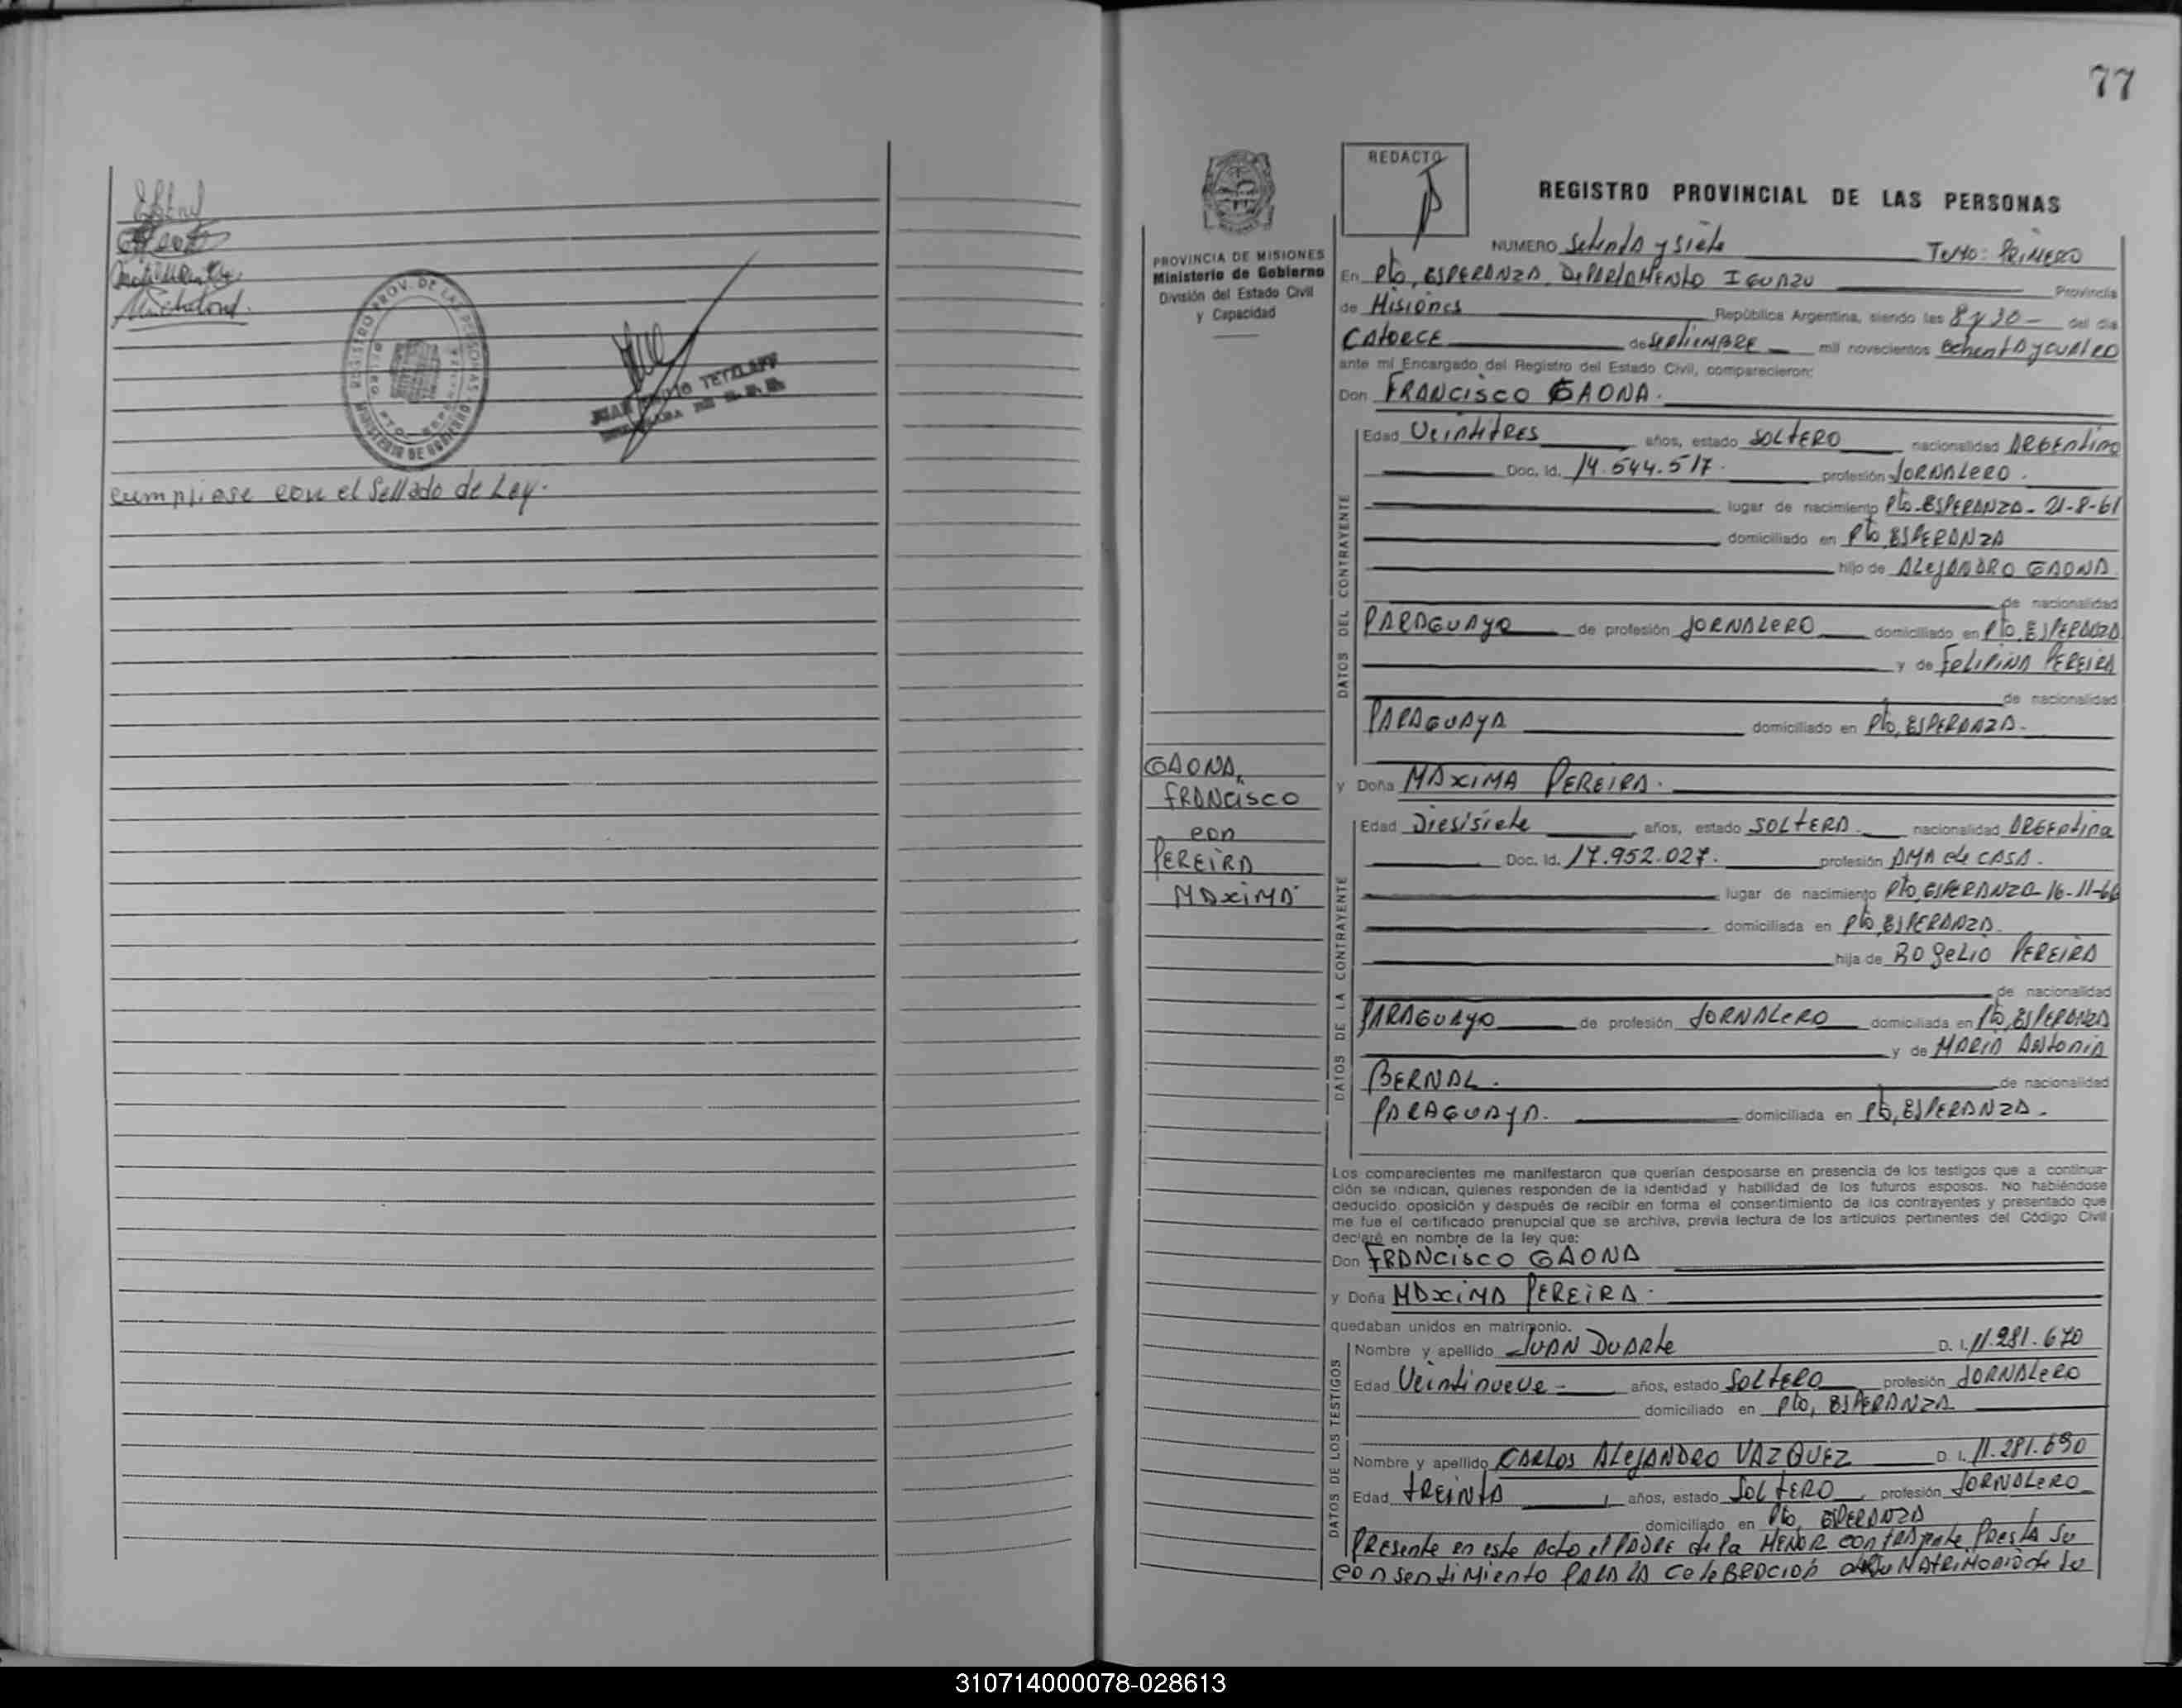 REGISTRO PROV. DE LAS PERSONAS
MINISTERIO DE GOBIERNO
cumpliose con el Sellado de Ley.
77
REDACTO
REGISTRO PROVINCIAL DE LAS PERSONAS
PROVINCIA DE MISIONES
Ministerio de Gobierno
División del Estado Civil
y Capacidad
GAONA,
FRANCISCO
con
PEREIRA
MAXIMA
NUMERO Setenta y siete TOMO: PRIMERO
En Pto, ESPERANZA, DEPARTAMENTO IGUAZU Provincia
de Misiones República Argentina, siendo las 8 y 30 - del día
CATORCE de SEPTIEMBRE mil novecientos ochenta y cuatro
ante mi Encargado del Registro del Estado Civil, comparecieron:
Don FRANCISCO GAONA.
DATOS DEL CONTRAYENTE
Edad Veintitres años, estado SOLTERO nacionalidad ARGENTINO
Doc. Id. 14.544.517. profesión JORNALERO.
lugar de nacimiento Pto. ESPERANZA - 21-8-61
domiciliado en Pto, ESPERANZA
hijo de ALEJANDRO GAONA
de nacionalidad
PARAGUAYO de profesión JORNALERO domiciliado en Pto, ESPERANZA
y de FELIPINA PEREIRA
de nacionalidad
PARAGUAYA domiciliado en Pto, ESPERANZA.
y Doña MAXIMA PEREIRA.
DATOS DE LA CONTRAYENTE
Edad Diesisiete años, estado SOLTERA nacionalidad ARGENTINA
Doc. Id. 17.952.027. profesión AMA de CASA.
lugar de nacimiento Pto, ESPERANZA 16-11-66
domiciliada en Pto, ESPERANZA.
hija de ROGELIO PEREIRA
de nacionalidad
PARAGUAYO de profesión JORNALERO domiciliada en Pto, ESPERANZA
y de MARIA ANTONIA
BERNAL. de nacionalidad
PARAGUAYA. domiciliada en Pto, ESPERANZA.
Los comparecientes me manifestaron que querían desposarse en presencia de los testigos que a continua-
ción se indican, quienes responden de la identidad y habilidad de los futuros esposos. No habiéndose
deducido oposición y después de recibir en forma el consentimiento de los contrayentes y presentado que
me fue el certificado prenupcial que se archiva, previa lectura de los artículos pertinentes del Código Civil
declaré en nombre de la ley que:
Don FRANCISCO GAONA
y Doña MAXIMA PEREIRA.
quedaban unidos en matrimonio.
DATOS DE LOS TESTIGOS
Nombre y apellido JUAN DUARTE D. I. 11.281.670
Edad Veintinueve - años, estado SOLTERO profesión JORNALERO
domiciliado en Pto, ESPERANZA
Nombre y apellido CARLOS ALEJANDRO VAZQUEZ D. I. 11.281.690
Edad TREINTA años, estado SOLTERO, profesión JORNALERO
domiciliado en Pto, ESPERANZA
PRESENTE en este ACTO el PADRE de la MENOR CONTRAYENTE PRESTA SU
consentimiento PARA LA CELEBRACION MATRIMONIO de su
310714000078-028613